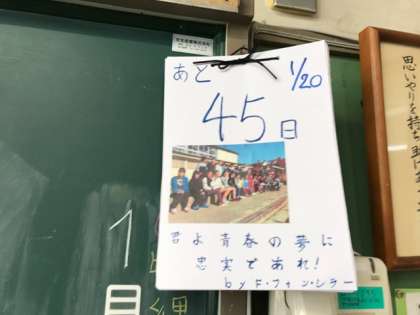 あと
1/20
45日
君よ青春の夢に
忠実であれ!
by F・フォン・シラー
思いやりを持ち
1
日